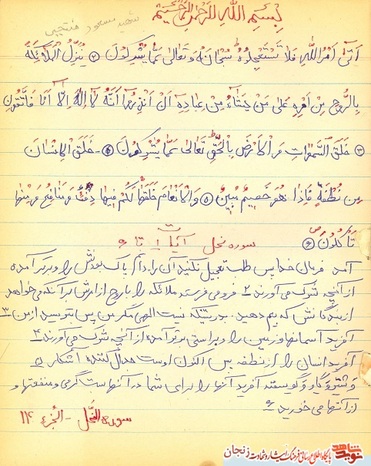 بسم الله الرحمن الرحیم
شهید مسعود فتحی
أتیٰ أمرُاللهِ فَلا تَستَعجِلوُهُ سُبحانَهُ وَتَعالیٰ عَمّا یُشرِکونَ ۱ یُنَزِّلُ المَلائِکَةَ
بِالرُّوحِ مِن أمرِهِ عَلیٰ مَن یَشاءُ مِن عِبادِهِ أن أنذِروُا أنَّهُ لا إلهَ إلّا أنَا فَاتَّقُونِ
۲ خَلَقَ السَّمواتِ وَالأرضَ بِالحَقِّ تَعالیٰ عَمّا یُشرِکُونَ ۳ خَلَقَ الإنسانَ
مِن نُطفَةٍ فَإذا هُوَ خَصیمٌ مُبینٌ ۴ وَالأنعامَ خَلَقَها لَکُم فیها دِفءٌ وَمَنافِعُ وَمِنها
تَأکُلُونَ ۵
سوره نحل آیه ۱ تا ۶
آمد فرمان خدا پس طلب تعجیل نکنید آن را دانم پاک بودنش را و برتر آمده
از آنچه شرک می آورند ۲ فرو می فرستد ملائکه را با روح از امرش بر آنکه می خواهد
از بندگانش که بیم دهید بدرستیکه نیست الهی مگر من پس بترسید از من ۳
آفرید آسمانها و زمین را و براستی برتر آمده از آنچه شرک می آورند ۴
آفرید انسان را از نطفه پس اکنون اوست جدال کننده آشکار ۵
و شتر و گاو و گوسفند آفرید آنها را برای شما در آنهاست گرمی و منفعتها و
از آنها می خورید ۶
سورة النحل - الجزء ۱۴
نوید شاهد
پایگاه اطلاع رسانی فرهنگ ایثار و شهادت زنجان